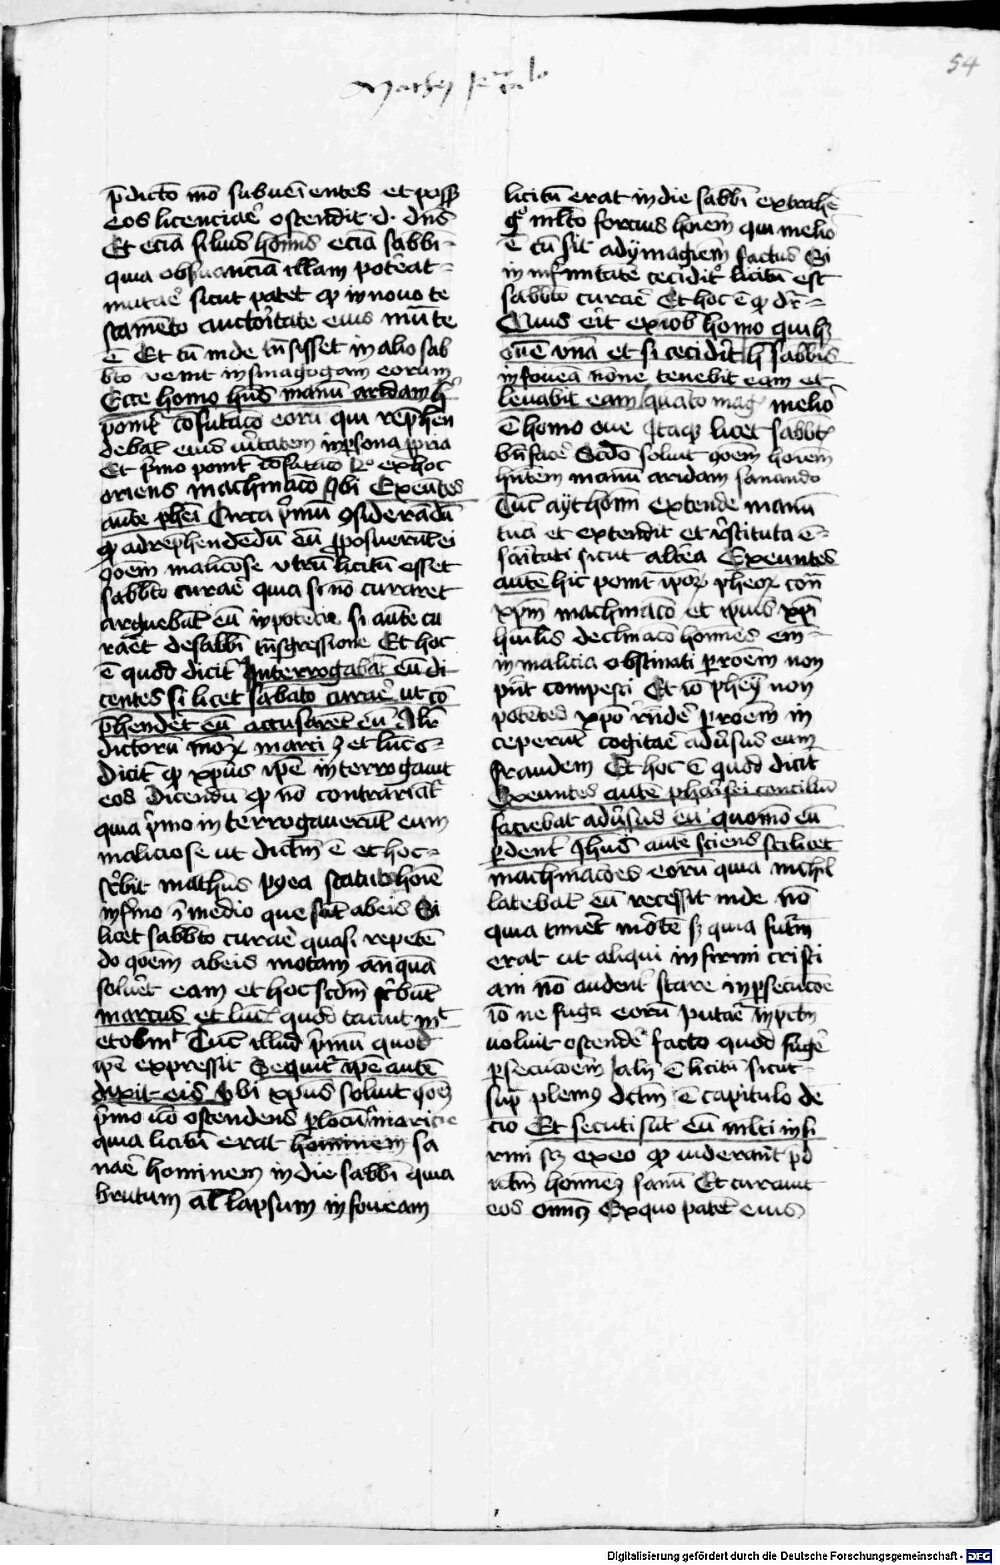 54
p̄dicto mō subueīentes et poss
eos licenciaē ostendit d. dn̄s
Et ecia filius hoīnis ecia sabbi
quia obseruanciā illam poterat
mutaē sicut patet qp in nouo te
stamēto auctoritate eius muta
ē Et cū inde tn̄sisset in alio sab
bto venit in sinagogam eorum
Ecce homo hn̄s manū aridam h̄
ponit͛ cōfutaco eorū qui rephen
debāt eius v̄itatem in psona ppria
Et p̄mo ponit͛ cōfutaco exhoc
oriens machinaco Ibi Exeuntes
autē pheī Circa p̄mū ꝯsiderādū
qp ad rephendēdū eū pposuerūt ei
qōem maliciose vtrū licitū esset
sabbto curaē quia si nō curaret
arguebāt eū inpotēcie si autē cu
raret de sabbī tn̄sgressione Et hoc
ē quod dicit͛ Interrogabāt eū di
centes si licet sabato curaē ut cō
p̄henderēt eū accusarēt eū
dictorū marci ꝫ et luce
Dicit͛ qp xp̄us ipē interrogauit
eos Dicendū qp nō contrariāt͛
quia p̄mo interrogauerūt eum
maliciose ut dictm̄ ē et hoc
sc̄bit matheus pꝰea statuto hoīe
infirmo ī medio quesiuit ab eis Si
licet sabbto curaē quasi repetē
do qōem ab eis motam anquā
solueret eam et hoc scdm̄ sc̄bunt
marcus et luc͛ quod tacuit mt͛
et ob mt͛ Tūc illud p̄mū quod
ipē expressit Sequit͛ ipē autē
dixit eis Vbi xpus soluit qōeꝫ
p̄mo uō ostendens p locū a minori
quia licitū erat hominem sa
naē hominem in die sabbī quia
brutum al̄ lapsum in foueam
licitū erat in die sabbī extrahē
gͦ ml̄to forcius hoīem qui melior
ē cū sit ad ymaginem factus Si
in infirmitate cecidit licitū est
sabbto curaē Et hoc ē qp dr̄
Quis erit ex vob homo qui hꝫ
ouē vnā et si cecidit h̄ sabbis
in foueā nōne tenebit eam et
leuabit eam quāto mag͛ melior
ē homo oue Itaqꝫ licet sabbt͛
bn̄facē Scdō soluit qōem hoīem
hn̄tem manū aridam sanando
Tūc ayt hoīni extende manū
tuā et extendit et r̄stituta ē
sāitati sicut altera Exeuntes
autē hic ponit͛ ipoꝝ pheoꝝ con
xp̄m machinaco et ipius xp̄i
hūilis declinaco hoīnes em
in malicia obstinati p roēm non
pn̄t compesci Et iō pheī non
potētes xpō r̄ndē p roēm in
ceperūt cogitaē aduersus eum
fraudem Et hoc ē quod dicit
Exeuntes autē pharisei conciliū
faciebāt aduersus eū quomō eū
pderent Ihus autē sciens scilicet
machinacōes eorū quia nichil
latebat eū recessit inde nō
quia timet mortē sꝫ quia futm̄
erat ut aliqui infirmi cristi
ani nō auderēt stare in psecucōe
iō ne fuga eorū putaret͛ in pctm̄
uoluit ostendē facto quod fugē
psecucōem in aliꝰ ē licitū sicut
sup̄ plenius dctm̄ ē capitulo de
cio Et secuti sūt eū ml̄ti infi
rmi sꝫ ex eo qp uiderant pd
ictm̄ hoīnem sanū Et curauit
eos om̄es Ex quo patet eius
Digitalisierung gefördert durch die Deutsche Forschungsgemeinschaft - DFG